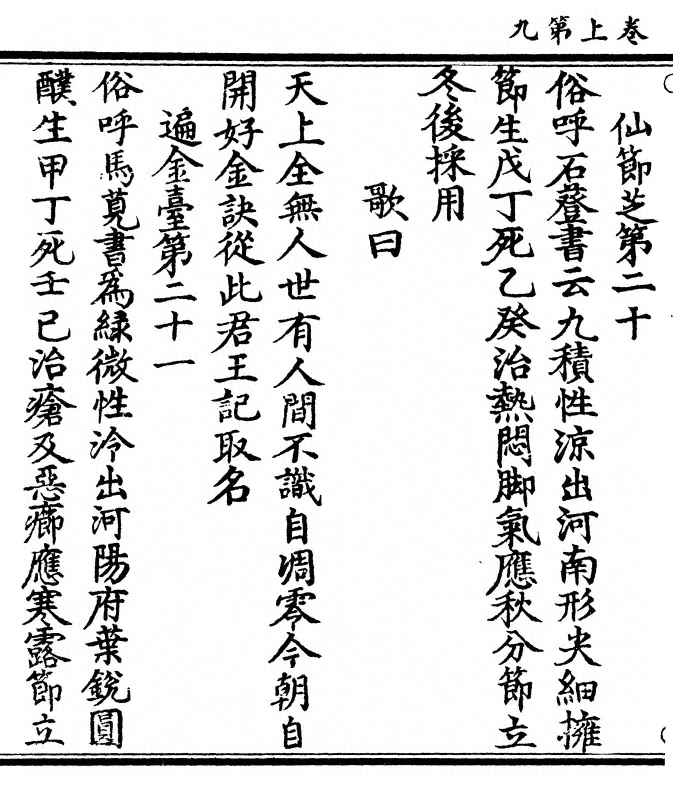 卷上第九
仙節芝第二十
俗呼石蔆書云九積性涼出河南形尖細擁
節生戊丁死乙癸治熱悶脚氣應秋分節立
冬後採用
歌曰
天上全無人世有人間不識自凋零今朝自
開好金訣從此君王記取名
遍金臺第二十一
俗呼馬莧書爲緑微性冷出河陽府葉銳圓
醭生甲丁死壬己治瘡及惡癤應寒露節立